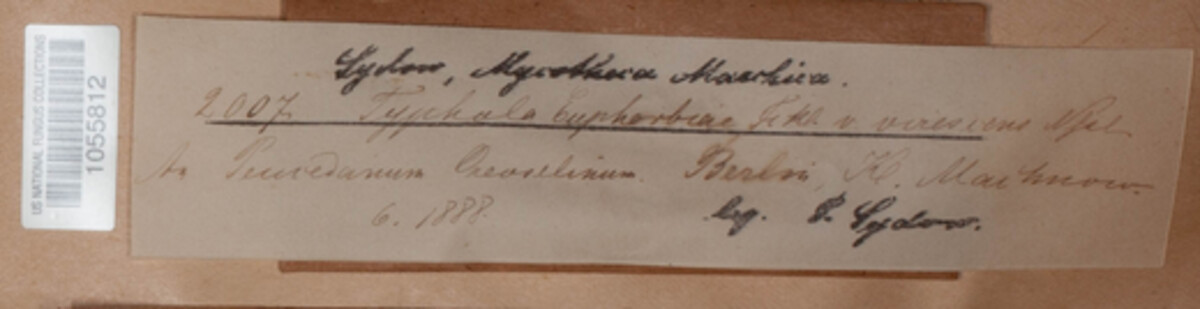 US NATIONAL FUNGUS COLLECTIONS
1055812
Sydow, Mycotheca Marchica.
2007 Typhula Euphorbiae Fckl. v. virescens
An Peucedanum Oreoselinum. Berlin, Kl. Machnow.
6. 1888.
leg. P. Sydow.